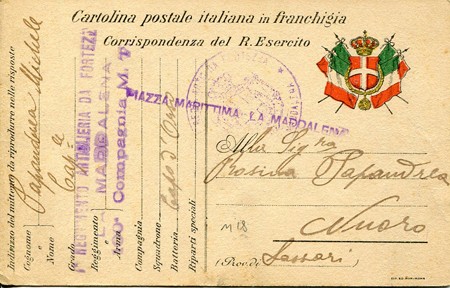 Cartolina postale italiana in franchigia
Corrispondenza del R. Esercito
PIAZZA MARITTIMA LA MADDALENA
Alla Sig.na
Rosina Papandrea
Nuoro
(Prov. di Sassari)
Indirizzo del mittente da riprodurre nelle risposte
Cognome e Nome Papandrea Michele
Grado Cap.le
Reggimento o Arma
Compagnia
Squadrone
Batteria Capo d'Orso
Riparti speciali
REGGIMENTO ARTIGLIERIA DA FORTEZZA
LA MADDALENA
Compagnia M. T.